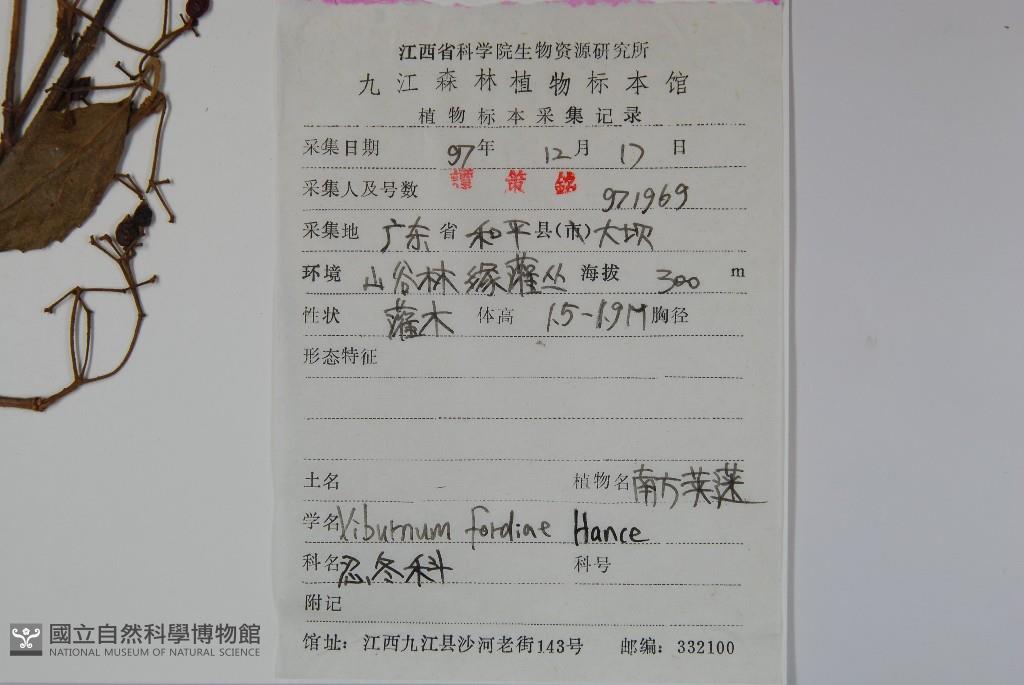 江西省科学院生物资源研究所
九江森林植物标本馆
植物标本采集记录
采集日期 97年 12月 17日
采集人及号数 譚策銘 971969
采集地 广东省 和平县(市)大坝
环境 山谷林缘灌丛 海拔 300 m
性状 灌木 体高 1.5-1.9M 胸径
形态特征
土名 植物名 南方荚蒾
学名 Viburnum fordiae Hance
科名 忍冬科 科号
附记
馆址：江西九江县沙河老街143号 邮编：332100
國立自然科學博物館
NATIONAL MUSEUM OF NATURAL SCIENCE